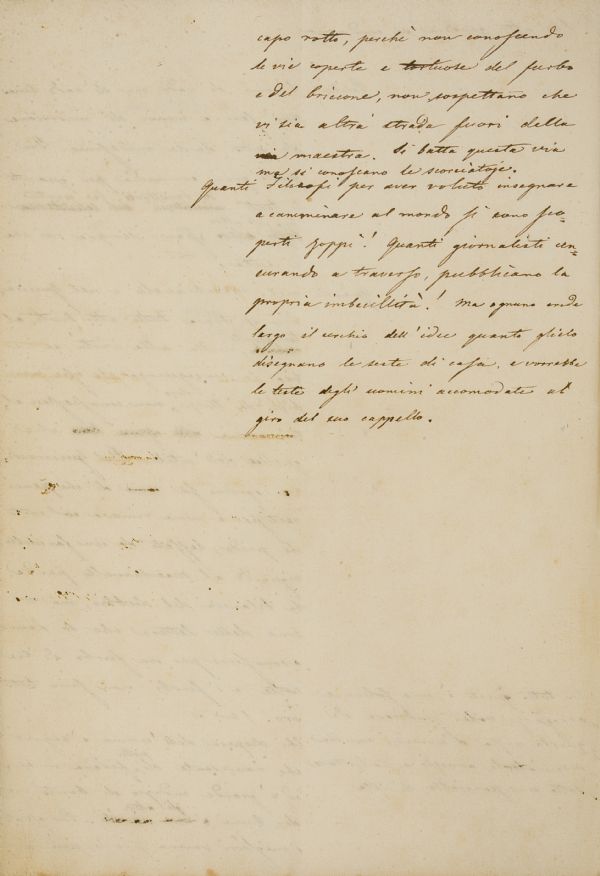 capo rotto, perchè non conoscendo
le vie coperte e tortuose del furbo
e del briccone, non sospettano che
vi sia altra strada fuori della
via maestra. Si batta questa via
ma si conoscano le scorciatoje.
Quanti Filosofi per aver voluto insegnare
a camminare al mondo si sono sco-
perti zoppi! Quanti giornalisti cen-
surando a traverso, pubblicano la
propria imbecillità! Ma ognuno crede
largo il cerchio dell'idee quanto glielo
disegnano le seste di casa, e vorrebbe
le teste degli uomini accomodate al
giro del suo cappello.